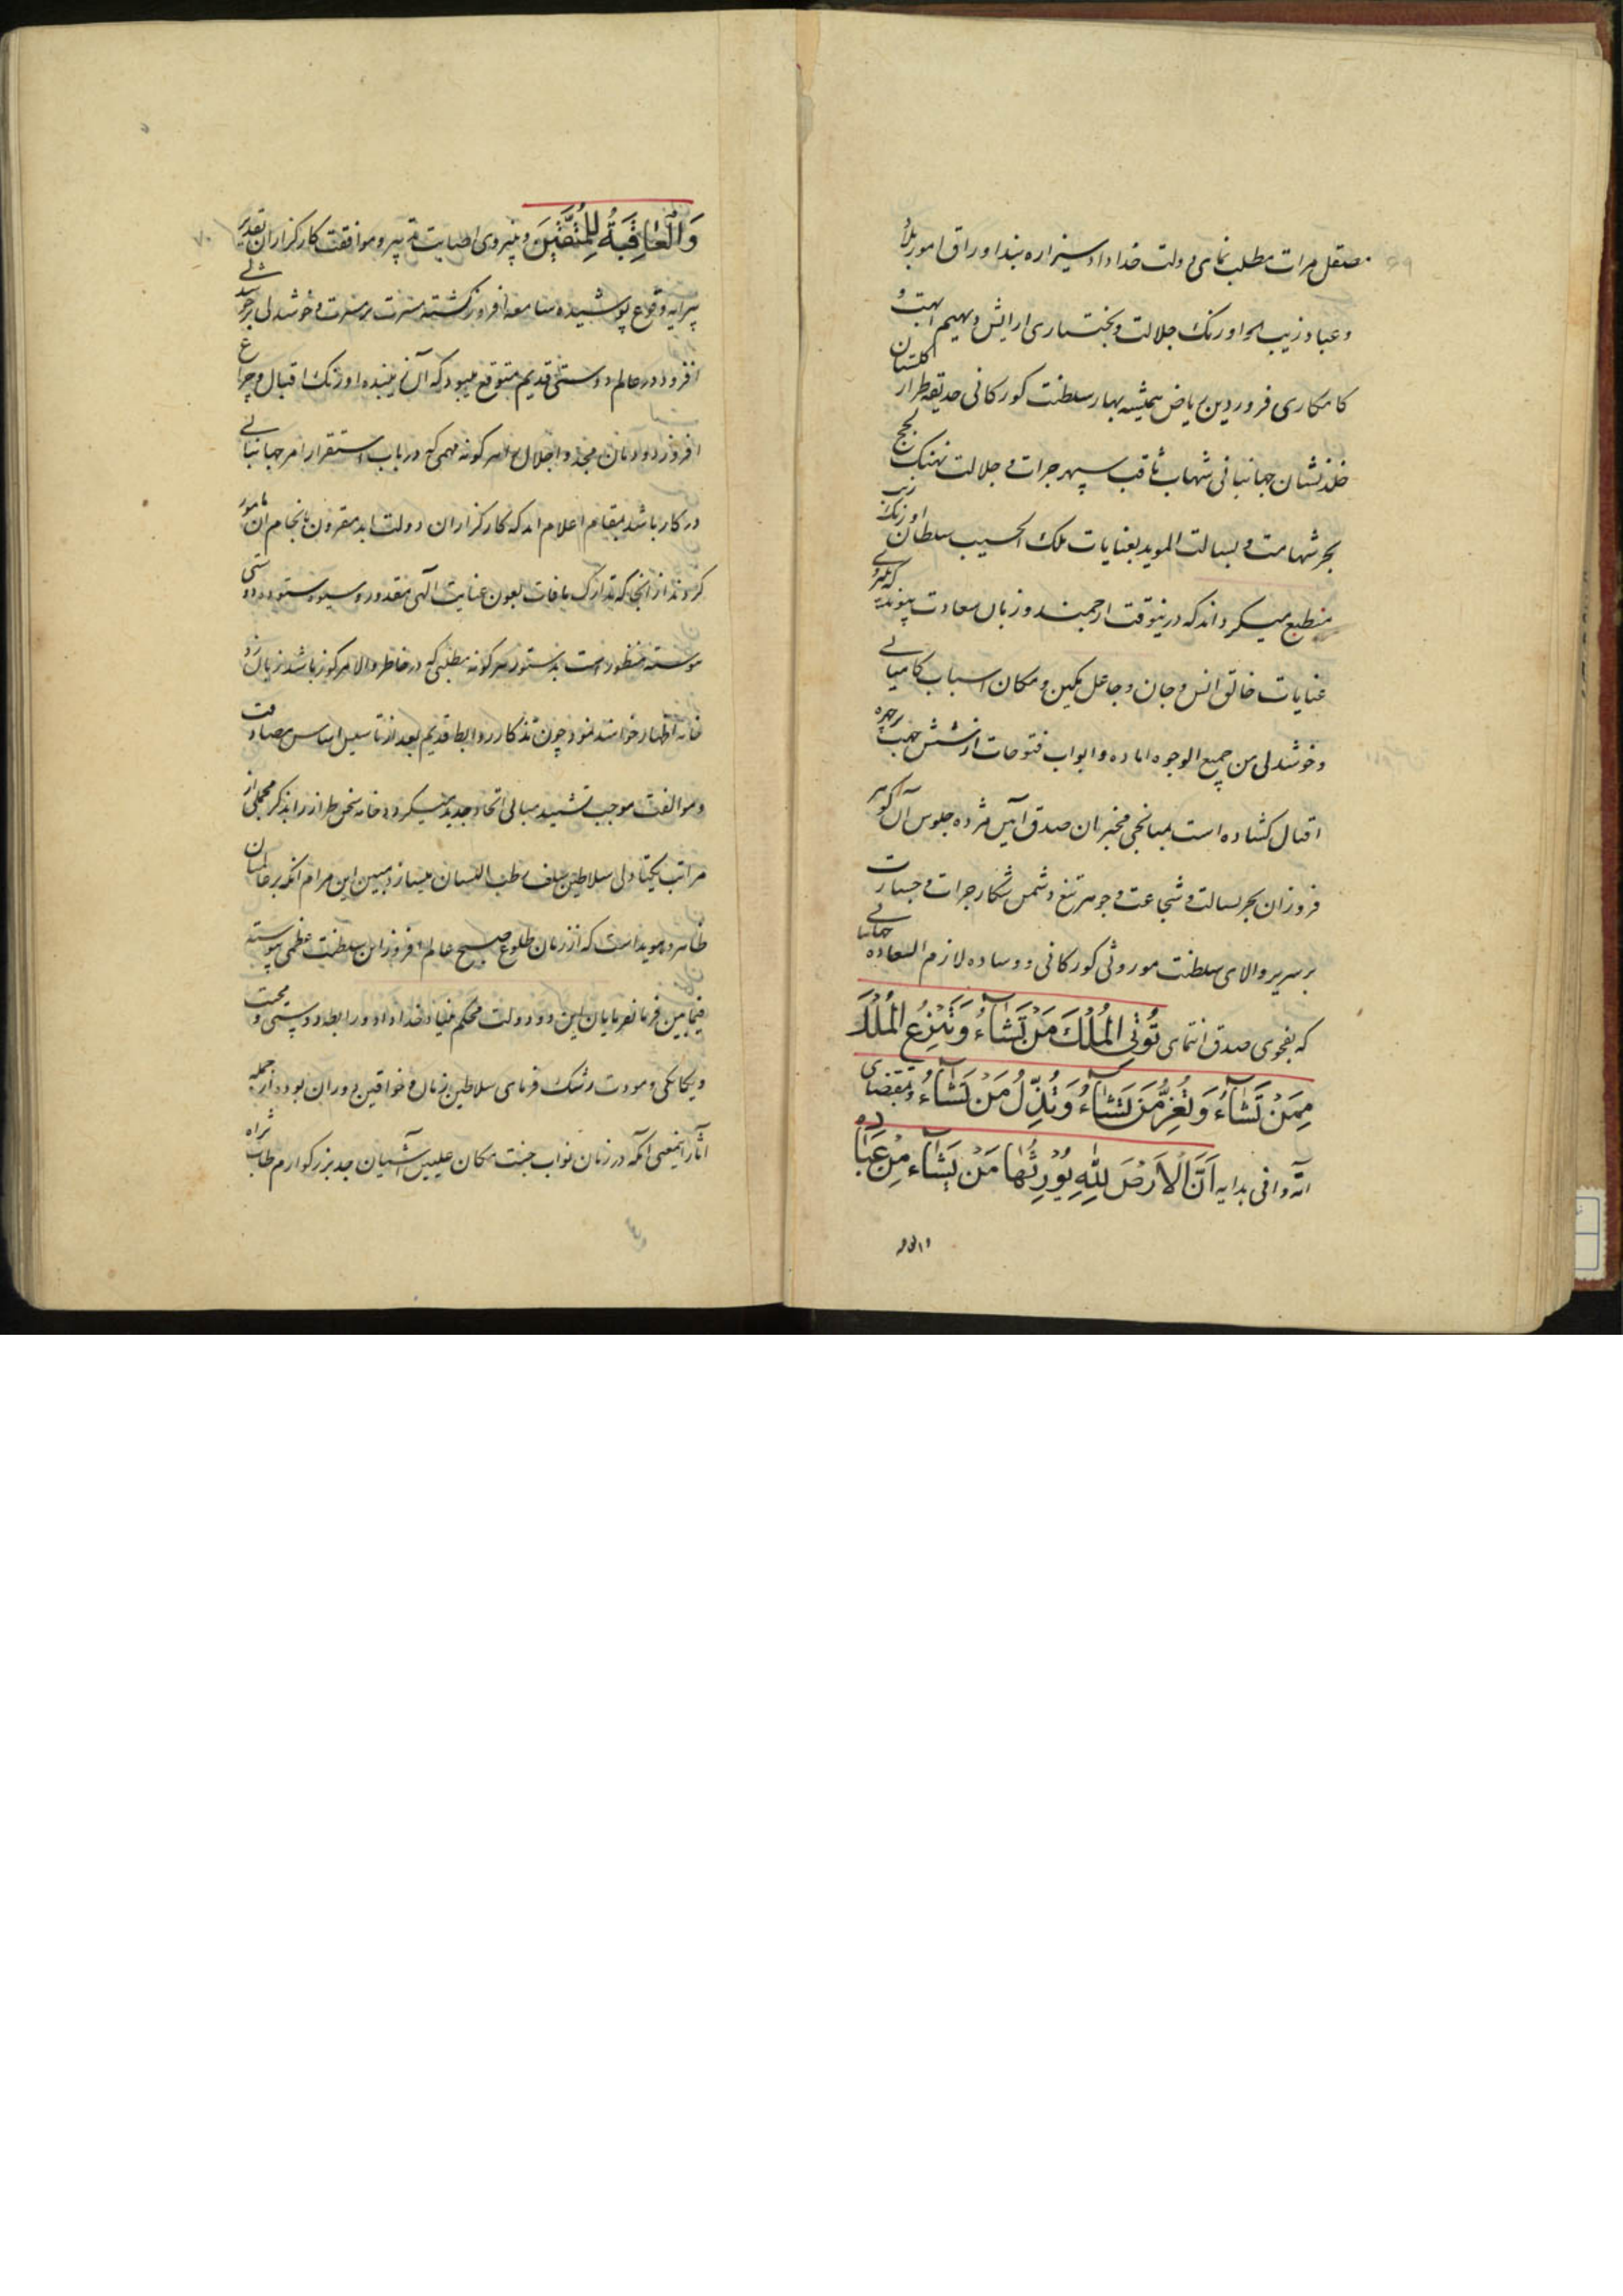 مصقل مرات مطلب نمای دولت خداداد و شیرازه بند اوراق امور بلاد
و عباد زیب اورنک جلالت و بختیاری ارایش دیهیم ابهت و
کامکاری فروردین ریاض همیشه بهار سلطنت کورکانی حدیقه طراز کلستان
نشان جهانبانی شهاب ثاقب سپهر جرات و جلالت نهنک لجج
بحر شهامت و بسالت الموید بعنایات ملک الحسیب سلطان اورنک زیب
منطبع میکرداند که درینوقت ارجمند و زمان سعادت پیوند که
عنایات خالق انس و جان و جاعل مکین و مکان اسباب کامیابی
و خوشدلی من جمیع الوجوه اماده و ابواب فتوحات از شش جهت بر چهره
اقبال کشاده است بمیانجی مخبران صدق آیین مژده جلوس آن کوهر
فروزان بحر بسالت و شجاعت و جوهر تیغ دشمن شکار جرات و جسارت
بر سریر والای سلطنت موروثی کورکانی و وساده لازم السعاده
که بفحوی صدق انتمای تُؤتِی المُلْكَ مَنْ تَشَآءُ وَتَنْزِعُ المُلْكَ
مِمَنْ تَشَآءُ وَتُعِزُّ مَنْ تَشَآءُ وَتُذِّلُ مَنْ تَشَآءُ و بمقتضای
وافی بدایه اَنَّ الاَرْضَ لِلّٰهِ یُوْرِثُها مَنْ یَشَآء مِنْ عِبَادِه
والعا
وَالْعَاقِبَةُ لِلْمُتَّقِیْنَ و نیروی اصابت تدبیر و موافقت کارکزاران تقدیر
پیرایه وقوع پوشیده سامعه افروز کشته مسرت بر مسرت و خوشدلی بر خوشدلی
افزود در عالم دوستی قدیم متوقع میبود که آن زیبنده اورنک اقبال و چراغ
افروز دودمان مجد و اجلال هر کونه مهمی که در باب استقرار امر جهانبانی
در کار باشد بمقام اعلام اید که کارکزاران دولت ابد مقرون بانجام آن مامور
کردند از انجا که تدارک مافات بعون عنایت الهی مقدور و شیوه ستوده دوستی
پیوسته منظور است بدستور هر کونه مطلبی که در خاطر والا مرکوز باشد زبان زد
خامه اظهار خواهند نمود چون تذکار روابط قدیم بعد از تاسیس اساس مصادقت
و موالفت موجب تشیید مبانی اتحاد جدید میکردد خامه سخن طراز را بذکر مجملی از
مراتب یکتادلی سلاطین سلف رطب اللسان میسازد مبین این مرام آنکه بر عالمیان
ظاهر و هویداست که از زمان طلوع صبح عالم افروز این سلطنت عظمی پیوسته
فیمابین فرمانفرمایان این دو دولت محکم بنیاد خداداد رابطه دوستی و محبت
و یکانکی و مودت رشک فرمای سلاطین زمان و خواقین دوران بوده از جمله
آثار اینمعنی آنکه در زمان نواب جنت مکان علیین آشیان جد بزرکوارم طاب ثراه